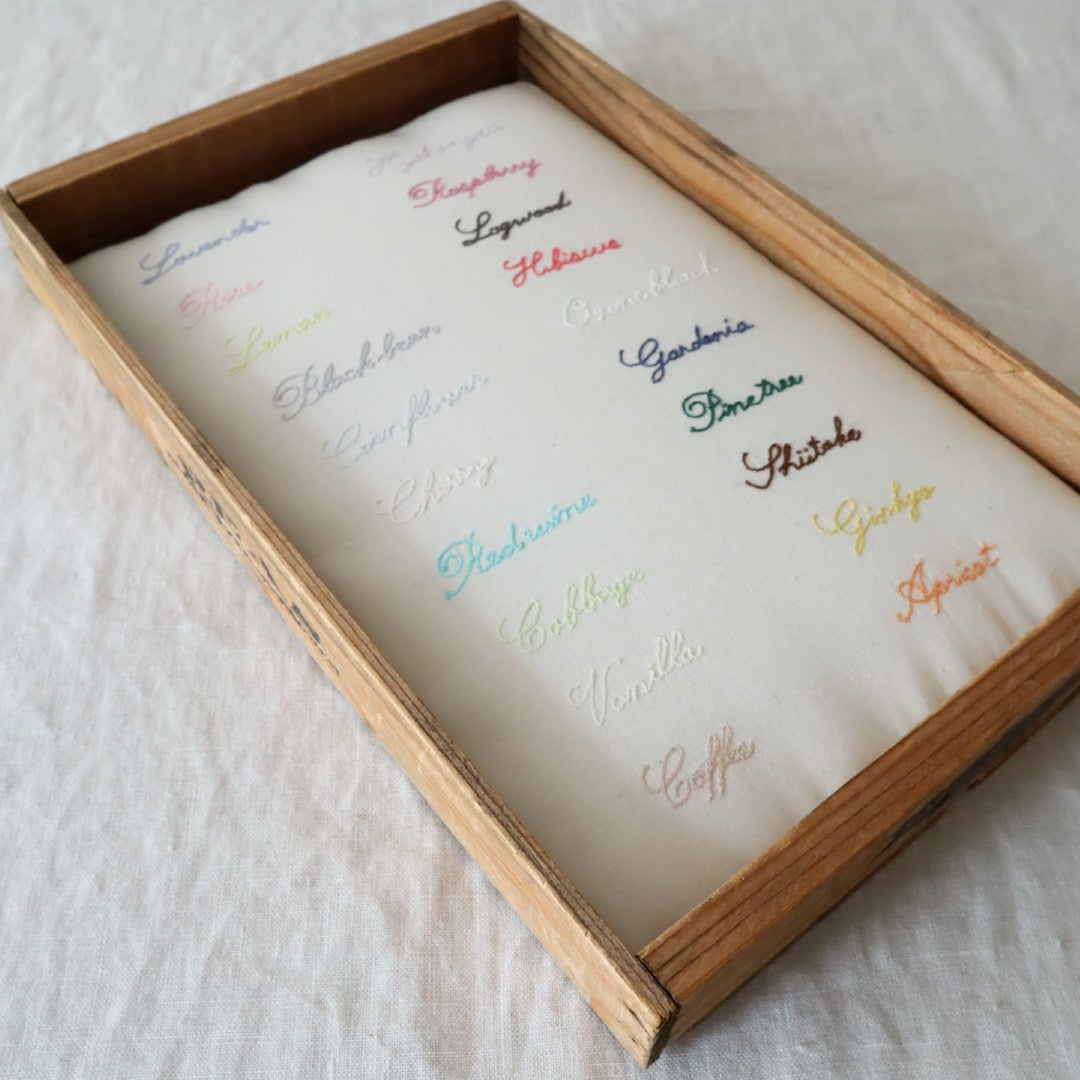 Lavender
Lemon
Black-bean
Cornflower
Cherry
Redwine
Cabbage
Vanilla
Coffee
Raspberry
Logwood
Hibiscus
Gardenia
Pinetree
Shiitake
Ginkyo
Apricot